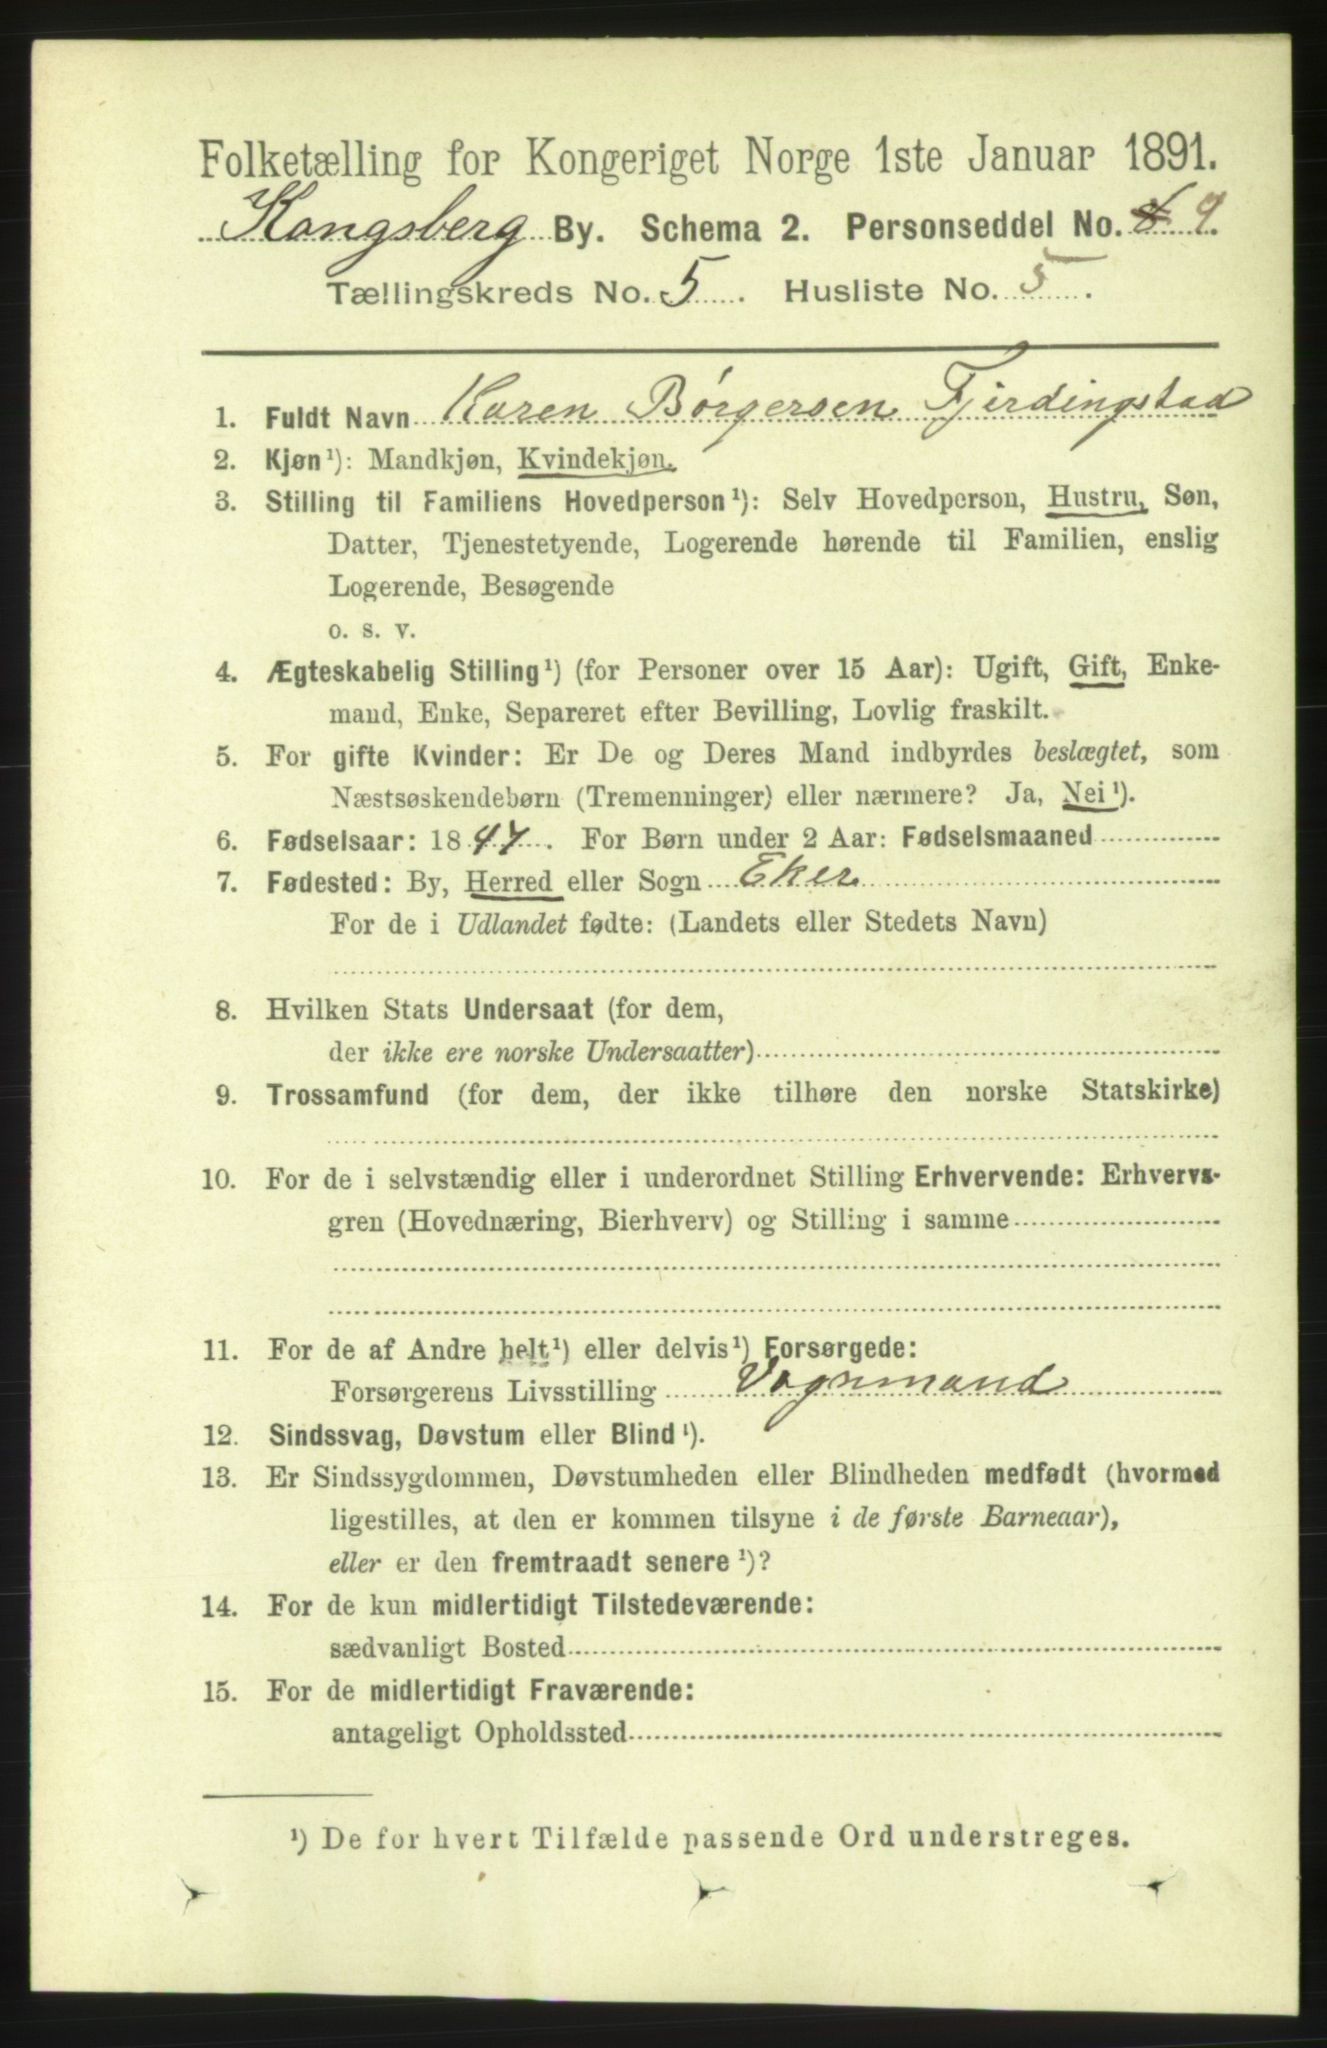 Folketælling for Kongeriget Norge 1ste Januar 1891.
Kongsberg By. Schema 2. Personseddel No. 9.
Tællingskreds No. 5. Husliste No. 5.
1. Fuldt Navn Karen Børgersen Fjerdingstad
2. Kjøn¹): Mandkjøn, Kvindekjøn.
3. Stilling til Familiens Hovedperson¹): Selv Hovedperson, Hustru, Søn,
Datter, Tjenestetyende, Logerende hørende til Familien, enslig
Logerende, Besøgende
o. s. v.
4. Ægteskabelig Stilling¹) (for Personer over 15 Aar): Ugift, Gift, Enke-
mand, Enke, Separeret efter Bevilling, Lovlig fraskilt.
5. For gifte Kvinder: Er De og Deres Mand indbyrdes beslægtet, som
Næstsøskendebørn (Tremenninger) eller nærmere? Ja, Nei¹).
6. Fødselsaar: 1847. For Børn under 2 Aar: Fødselsmaaned
7. Fødested: By, Herred eller Sogn Eker
For de i Udlandet fødte: (Landets eller Stedets Navn)
8. Hvilken Stats Undersaat (for dem,
der ikke ere norske Undersaatter)
9. Trossamfund (for dem, der ikke tilhøre den norske Statskirke)
10. For de i selvstændig eller i underordnet Stilling Erhvervende: Erhvervs-
gren (Hovednæring, Bierhverv) og Stilling i samme
11. For de af Andre helt¹) eller delvis¹) Forsørgede:
Forsørgerens Livsstilling Vognmand
12. Sindssvag, Døvstum eller Blind¹).
13. Er Sindssygdommen, Døvstumheden eller Blindheden medfødt (hvormed
ligestilles, at den er kommen tilsyne i de første Barneaar),
eller er den fremtraadt senere¹)?
14. For de kun midlertidigt Tilstedeværende:
sædvanligt Bosted
15. For de midlertidigt Fraværende:
antageligt Opholdssted
¹) De for hvert Tilfælde passende Ord understreges.